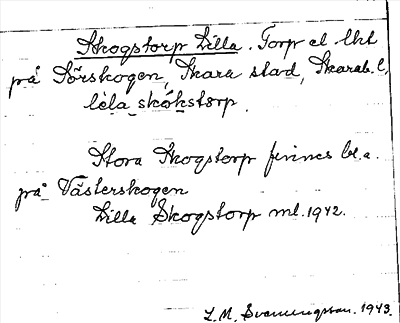 Skogstorp Lilla. Torp el. lht
på Sörskogen, Skara stad, Skarab. l.
lèla skókstorp
Stora Skogstorp finnes bl.a.
på Västerskogen
Lilla Skogstorp ml. 1942.
L. M. Svanungsson. 1943.